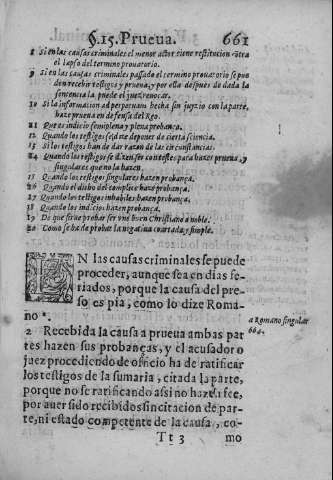 §. 15. Prueua. 661
8 Si en las causas criminales el menor actor tiene restitucion cõtra
el lapso del termino prouatorio.
9 Si en las causas criminales passado el termino prouatorio se pue
den recebir testigos y prueua, y por ella despues de dada la
sentencia la puede el juez reuocar.
10 Si la informacion ad perpetuam hecha sin juyzio con la parte,
haze prueua en defensa del Reo.
11 Que es indicio semiplena y plena prouança.
12 Quando los testigos se dize deponer de cierta sciencia.
13 Si los testigos han de dar razon de las circunstancias.
14 Quando los testigos se dizen ser contestes para hazer prueua, y
singulares que no la hazen.
15 Quando los testigos singulares hazen prouança.
16 Quando el dicho del complice haze prouança.
17 Quando los testigos inhabiles hazen prouança.
18 Quando los indicios hazen prouança.
19 De que sirue prouar ser vno buen Christiano o noble.
20 Como se ha de prouar la negatiua coartada y simple.
EN las causas criminales se puede
proceder, aunque sea en dias fe-
riados, porque la causa del pre-
so es pia, como lo dize Roma-
no a.
a Romano singular
664.
2 Recebida la causa a prueua ambas par
tes hazen sus prouanças, y el acusador o
juez procediendo de oficio ha de ratificar
los testigos de la sumaria, citada la parte,
porque no se ratificando assi no hazen fee,
por auer sido recebidos sin citacion de par-
te, ni estado competente de la causa, co-
Tt 3 mo